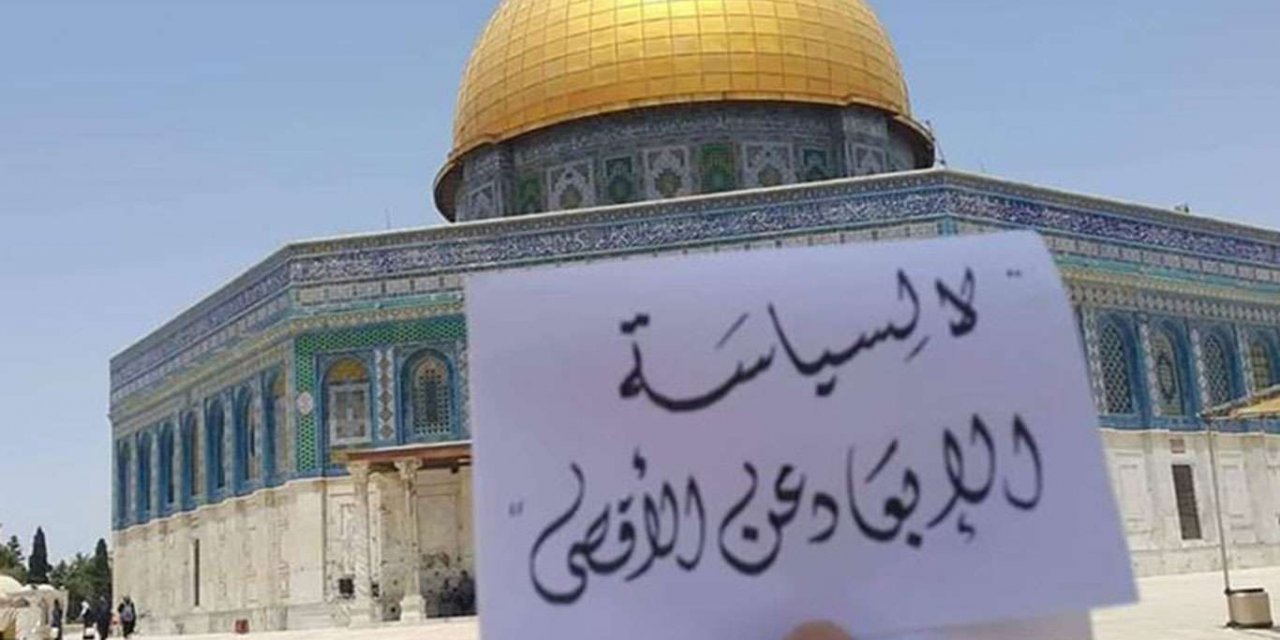 " لا لِسياسَة
الإبعَاد عن الأقصى "